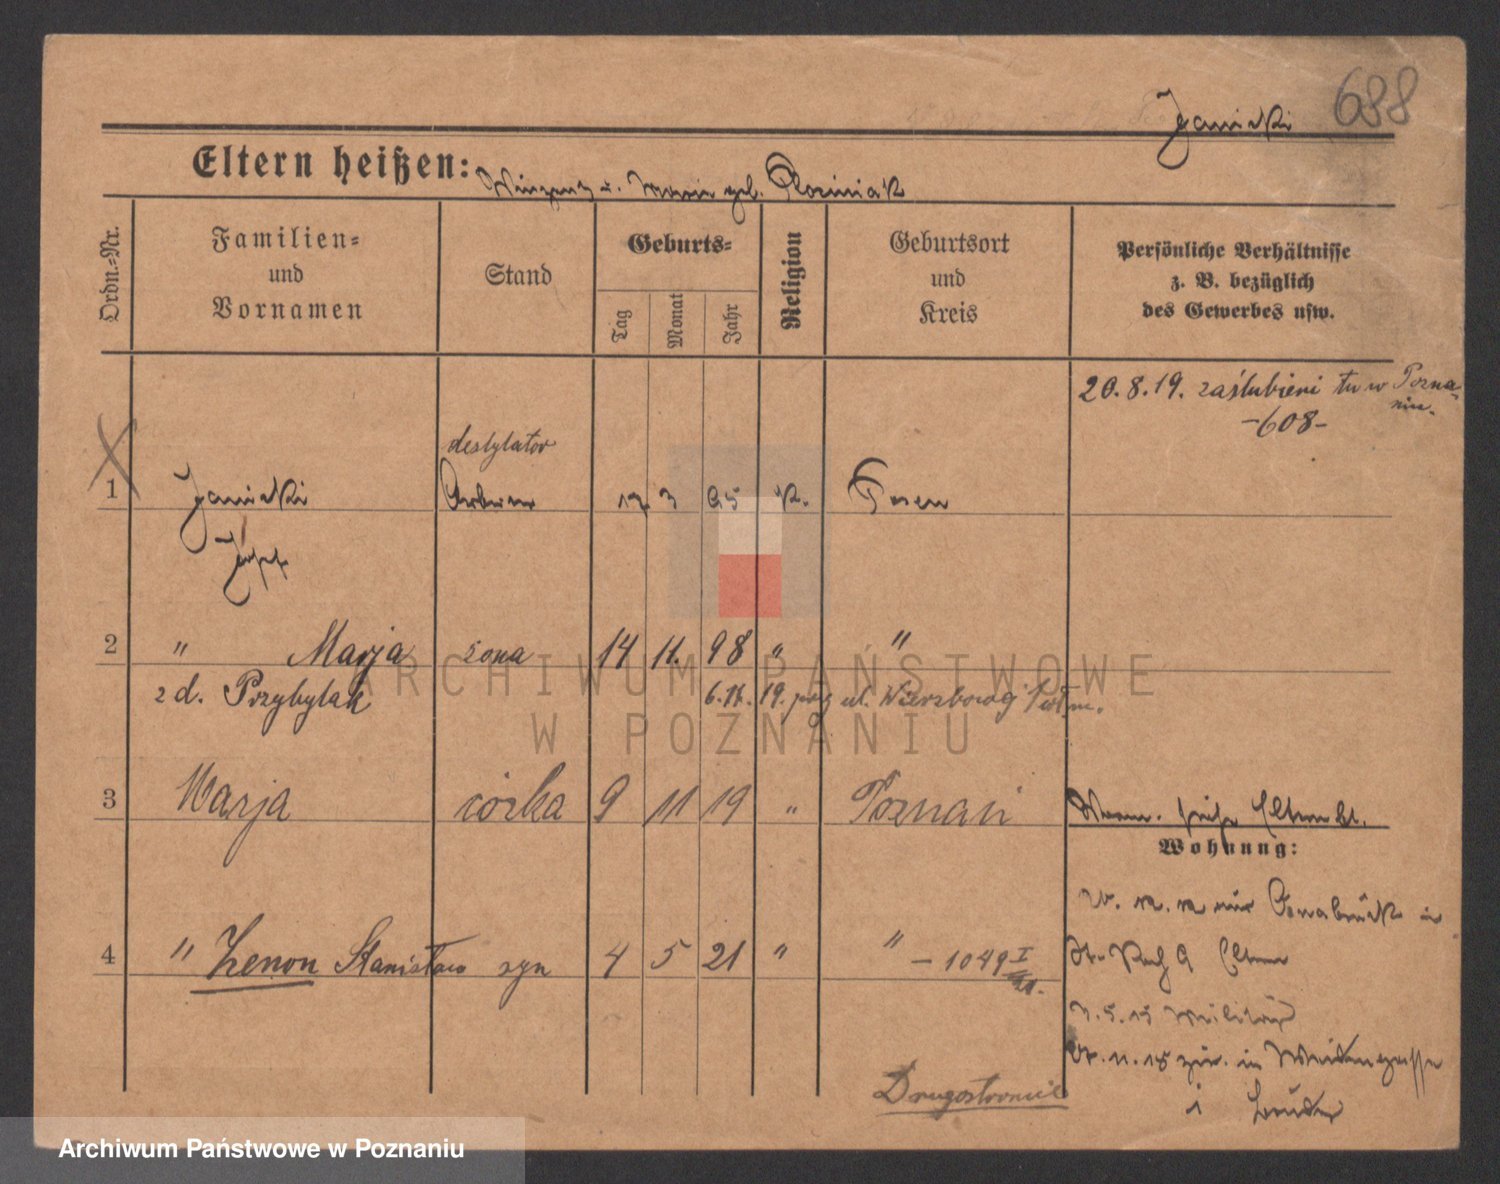 Janicki 688
Eltern heißen: Winzent u. Marie geb. Rosiniak
Ordn.-Nr.
Familien-
und
Vornamen
Stand
Geburts-
Tag
Monat
Jahr
Religion
Geburtsort
und
Kreis
Persönliche Verhältnisse
z. B. bezüglich
des Gewerbes usw.
20.8.19. zaślubieni tu w Pozna-
niu.
-608-
destylator
1 Janicki Arbeiter 17 3 95 k. Posen
Józef
2 " Marja żona 14 11. 98 " "
z d. Przybylak 6.11.19. ul. Wierzbowej
3 Marja córka 9 11 19 " Poznań
Wohnung:
4 " Zenon Stanisław syn 4 5 21 " " - 1049 I
Osnabrück in
Eltern
7.5.15 Militär
in
Drugostronie
ARCHIWUM PAŃSTWOWE
W POZNANIU
Archiwum Państwowe w Poznaniu